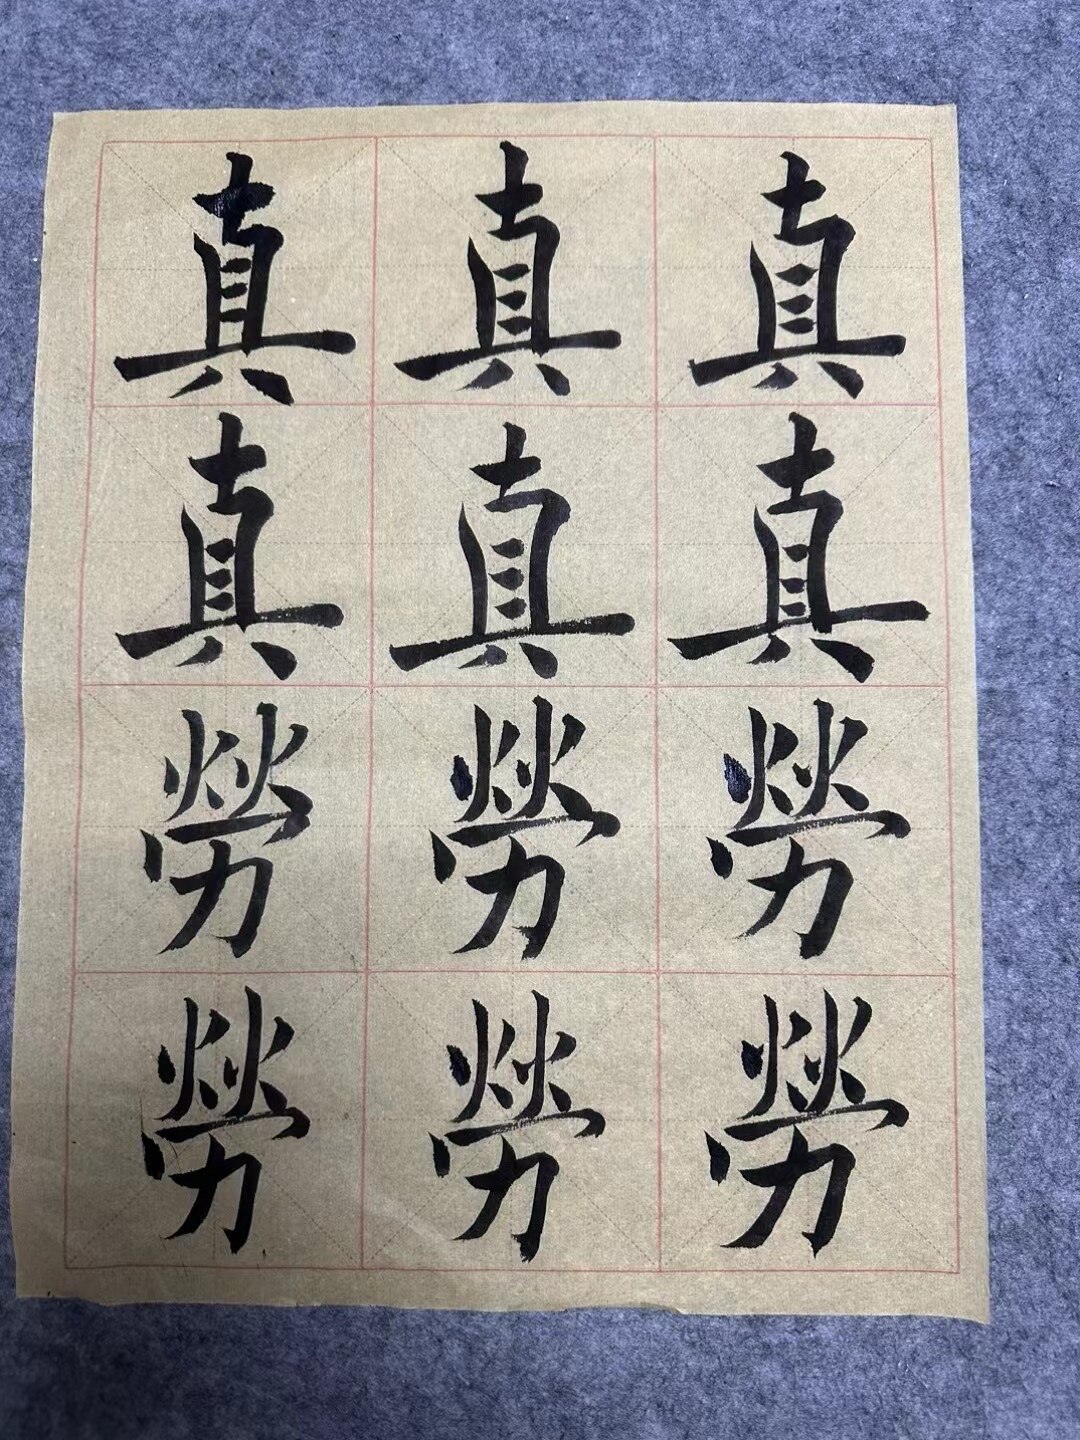 真真真
真真真
勞勞勞
勞勞勞